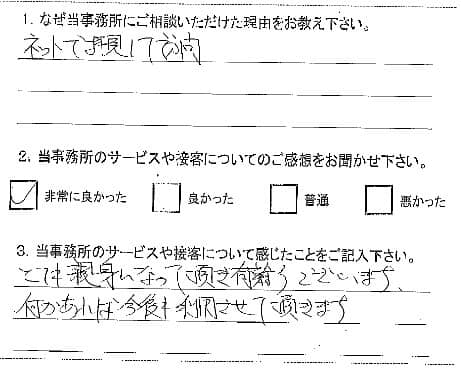 1. なぜ当事務所にご相談いただけた理由をお教え下さい。
ネットで拝見して訪問
2. 当事務所のサービスや接客についてのご感想をお聞かせ下さい。
非常に良かった 良かった 普通 悪かった
3. 当事務所のサービスや接客について感じたことをご記入下さい。
とても親身になって頂き有難うございます、
何かあれば今後も利用させて頂きます